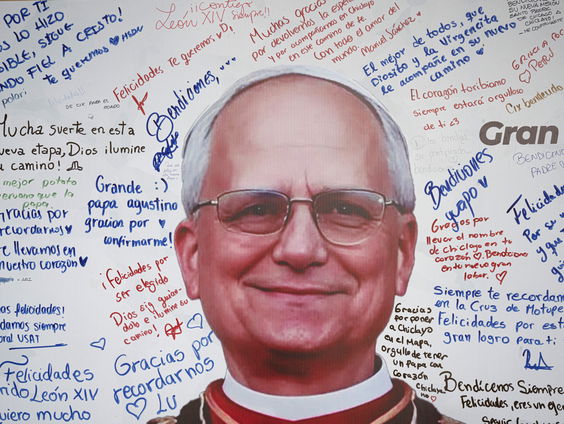 POR TI
LO HIZO
SIBLE, SIGUE
FIEL A CRISTO!
te queremos
¡¡Gentil
León XIV siempre!!
Felicidades, te queremos
Muchas gracias
por devolvernos la esper
Y por acompañarnos en Chiclayo
en este camino de fe
Con todo el amor del
mundo, Manuel Sánchez
El mejor de todos, que
Diosito y la Virgencita
te acompañe en su nuevo
camino
GRACIAS
PERÚ
Bendiciones,
El corazón toribiano
siempre estará orgulloso
de ti <3
Mucha suerte en esta
nueva etapa, Dios ilumine
u camino!
Gran
BENDICION
PADRE
mejor
peruano que la
papa
Gracias por
recordarnos
te llevamos en
nuestro corazón
Grande :)
papa agustino
gracias por
confirmarme!
Bendiciones
guapo
Gracias por
llevar el nombre
de chiclayo en tu
corazón Bendiciones
en tu nuevo gran
lotar.
Felicidades
Por su
y que
¡Felicidades por
ser elegido
Dios siga guian-
dolo e ilumine su
camino!
Siempre te recordan
en la Cruz de Motupe
Felicidades por est
gran logro para ti
as felicidades!
damos siempre
USAT
Gracias por
recordarnos
LU
Gracias
por poner
a Chiclayo
en el mapa,
orgullo de tener
un papa con
corazón
chiclayano
Felicidades
León XIV
quiero mucho
Bendícenos Siempre
Felicidades, eres un ejem